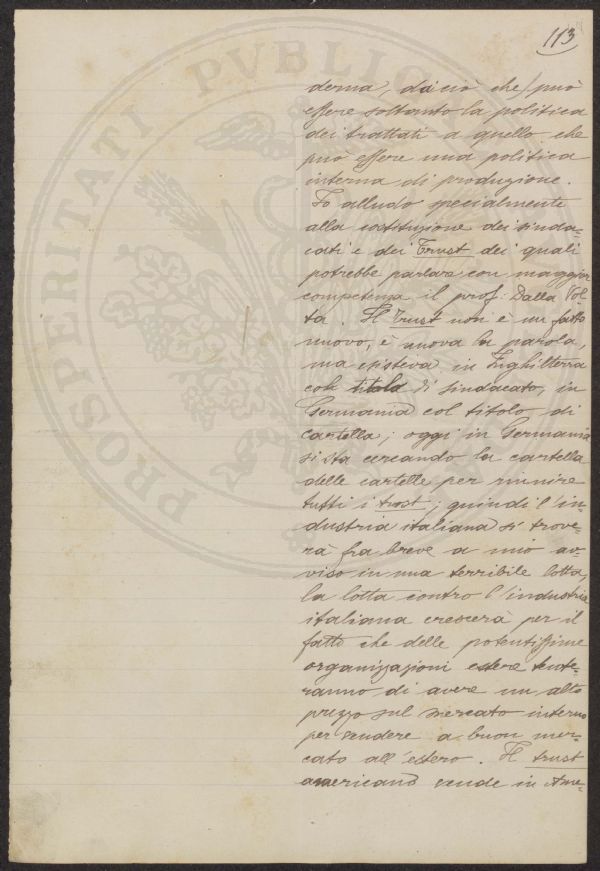 113
derna, da ciò che può
essere soltanto la politica
dei trattati a quello che
può essere una politica
interna di produzione.
Io alludo specialmente
alla costituzione dei sinda-
cati e dei Trust dei quali
potrebbe parlare con maggior
competenza il prof: Dalla Vol-
ta. Il Trust non è un fatto
nuovo, è nuova la parola,
ma esisteva in Inghilterra
col titolo di sindacato, in
Germania col titolo di
cartella; oggi in Germania
si sta cercando la cartella
delle cartelle per riunire
tutti i trost; quindi l'in-
dustria italiana si trove-
rà fra breve a mio av-
viso in una terribile lotta,
la lotta contro l'industria
italiana crescerà per il
fatto che delle potentissime
organizzazioni estere tente-
ranno di avere un alto
prezzo sul mercato interno
per vendere a buon mer-
cato all'estero. Il trust
americano vende in Ame-
PROSPERITATI PVBLICAE